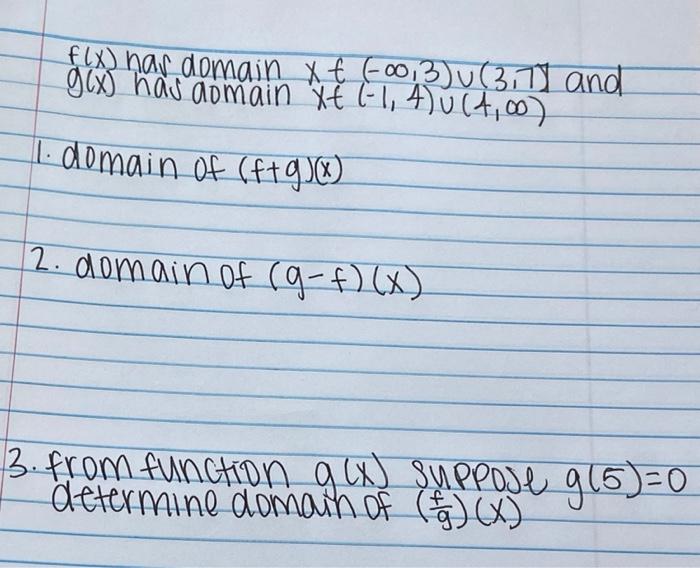 f(x) has domain x ∈ (-∞,3)∪(3,7] and
g(x) has domain x ∈ (-1, 4)∪(4,∞)
1. domain of (f+g)(x)
2. domain of (g-f)(x)
3. from function g(x) suppose g(5)=0
determine domain of (f/g)(x)